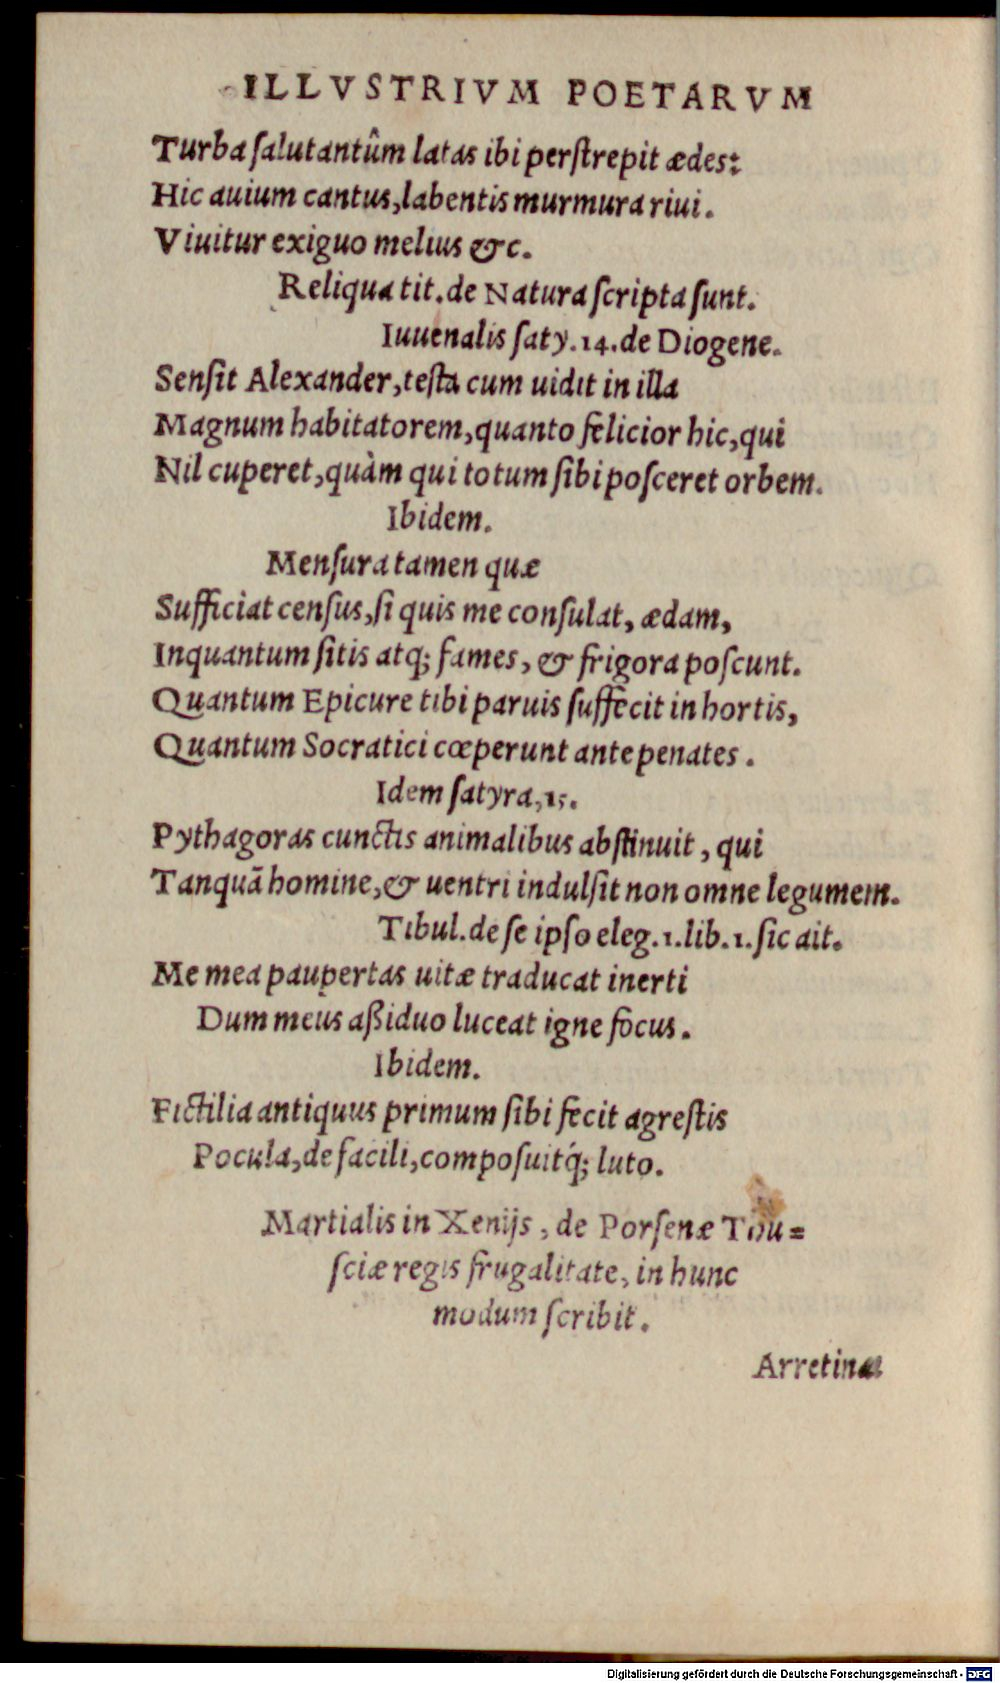 ILLVSTRIVM POETARVM
Turba ſalutantûm latas ibi perſtrepit ædes:
Hic auium cantus, labentis murmura riui.
Viuitur exiguo melius &c.
Reliqua tit. de Natura ſcripta ſunt.
Iuuenalis ſaty. 14. de Diogene.
Senſit Alexander, teſta cum uidit in illa
Magnum habitatorem, quanto felicior hic, qui
Nil cuperet, quàm qui totum ſibi poſceret orbem.
Ibidem.
Menſura tamen quæ
Sufficiat cenſus, ſi quis me conſulat, ædam,
Inquantum ſitis atq; fames, & frigora poſcunt.
Quantum Epicure tibi paruis ſuffecit in hortis,
Quantum Socratici cœperunt ante penates.
Idem ſatyra, 15.
Pythagoras cunctis animalibus abſtinuit, qui
Tanquã homine, & uentri indulſit non omne legumem.
Tibul. de ſe ipſo eleg. 1. lib. 1. ſic ait.
Me mea paupertas uitæ traducat inerti
Dum meus aßiduo luceat igne focus.
Ibidem.
Fictilia antiquus primum ſibi fecit agreſtis
Pocula, de facili, compoſuitq́; luto.
Martialis in Xenijs, de Porſenæ Thu=
ſciæ regis frugalitate, in hunc
modum ſcribit.
Arretinæ
Digitalisierung gefördert durch die Deutsche Forschungsgemeinschaft - DFG